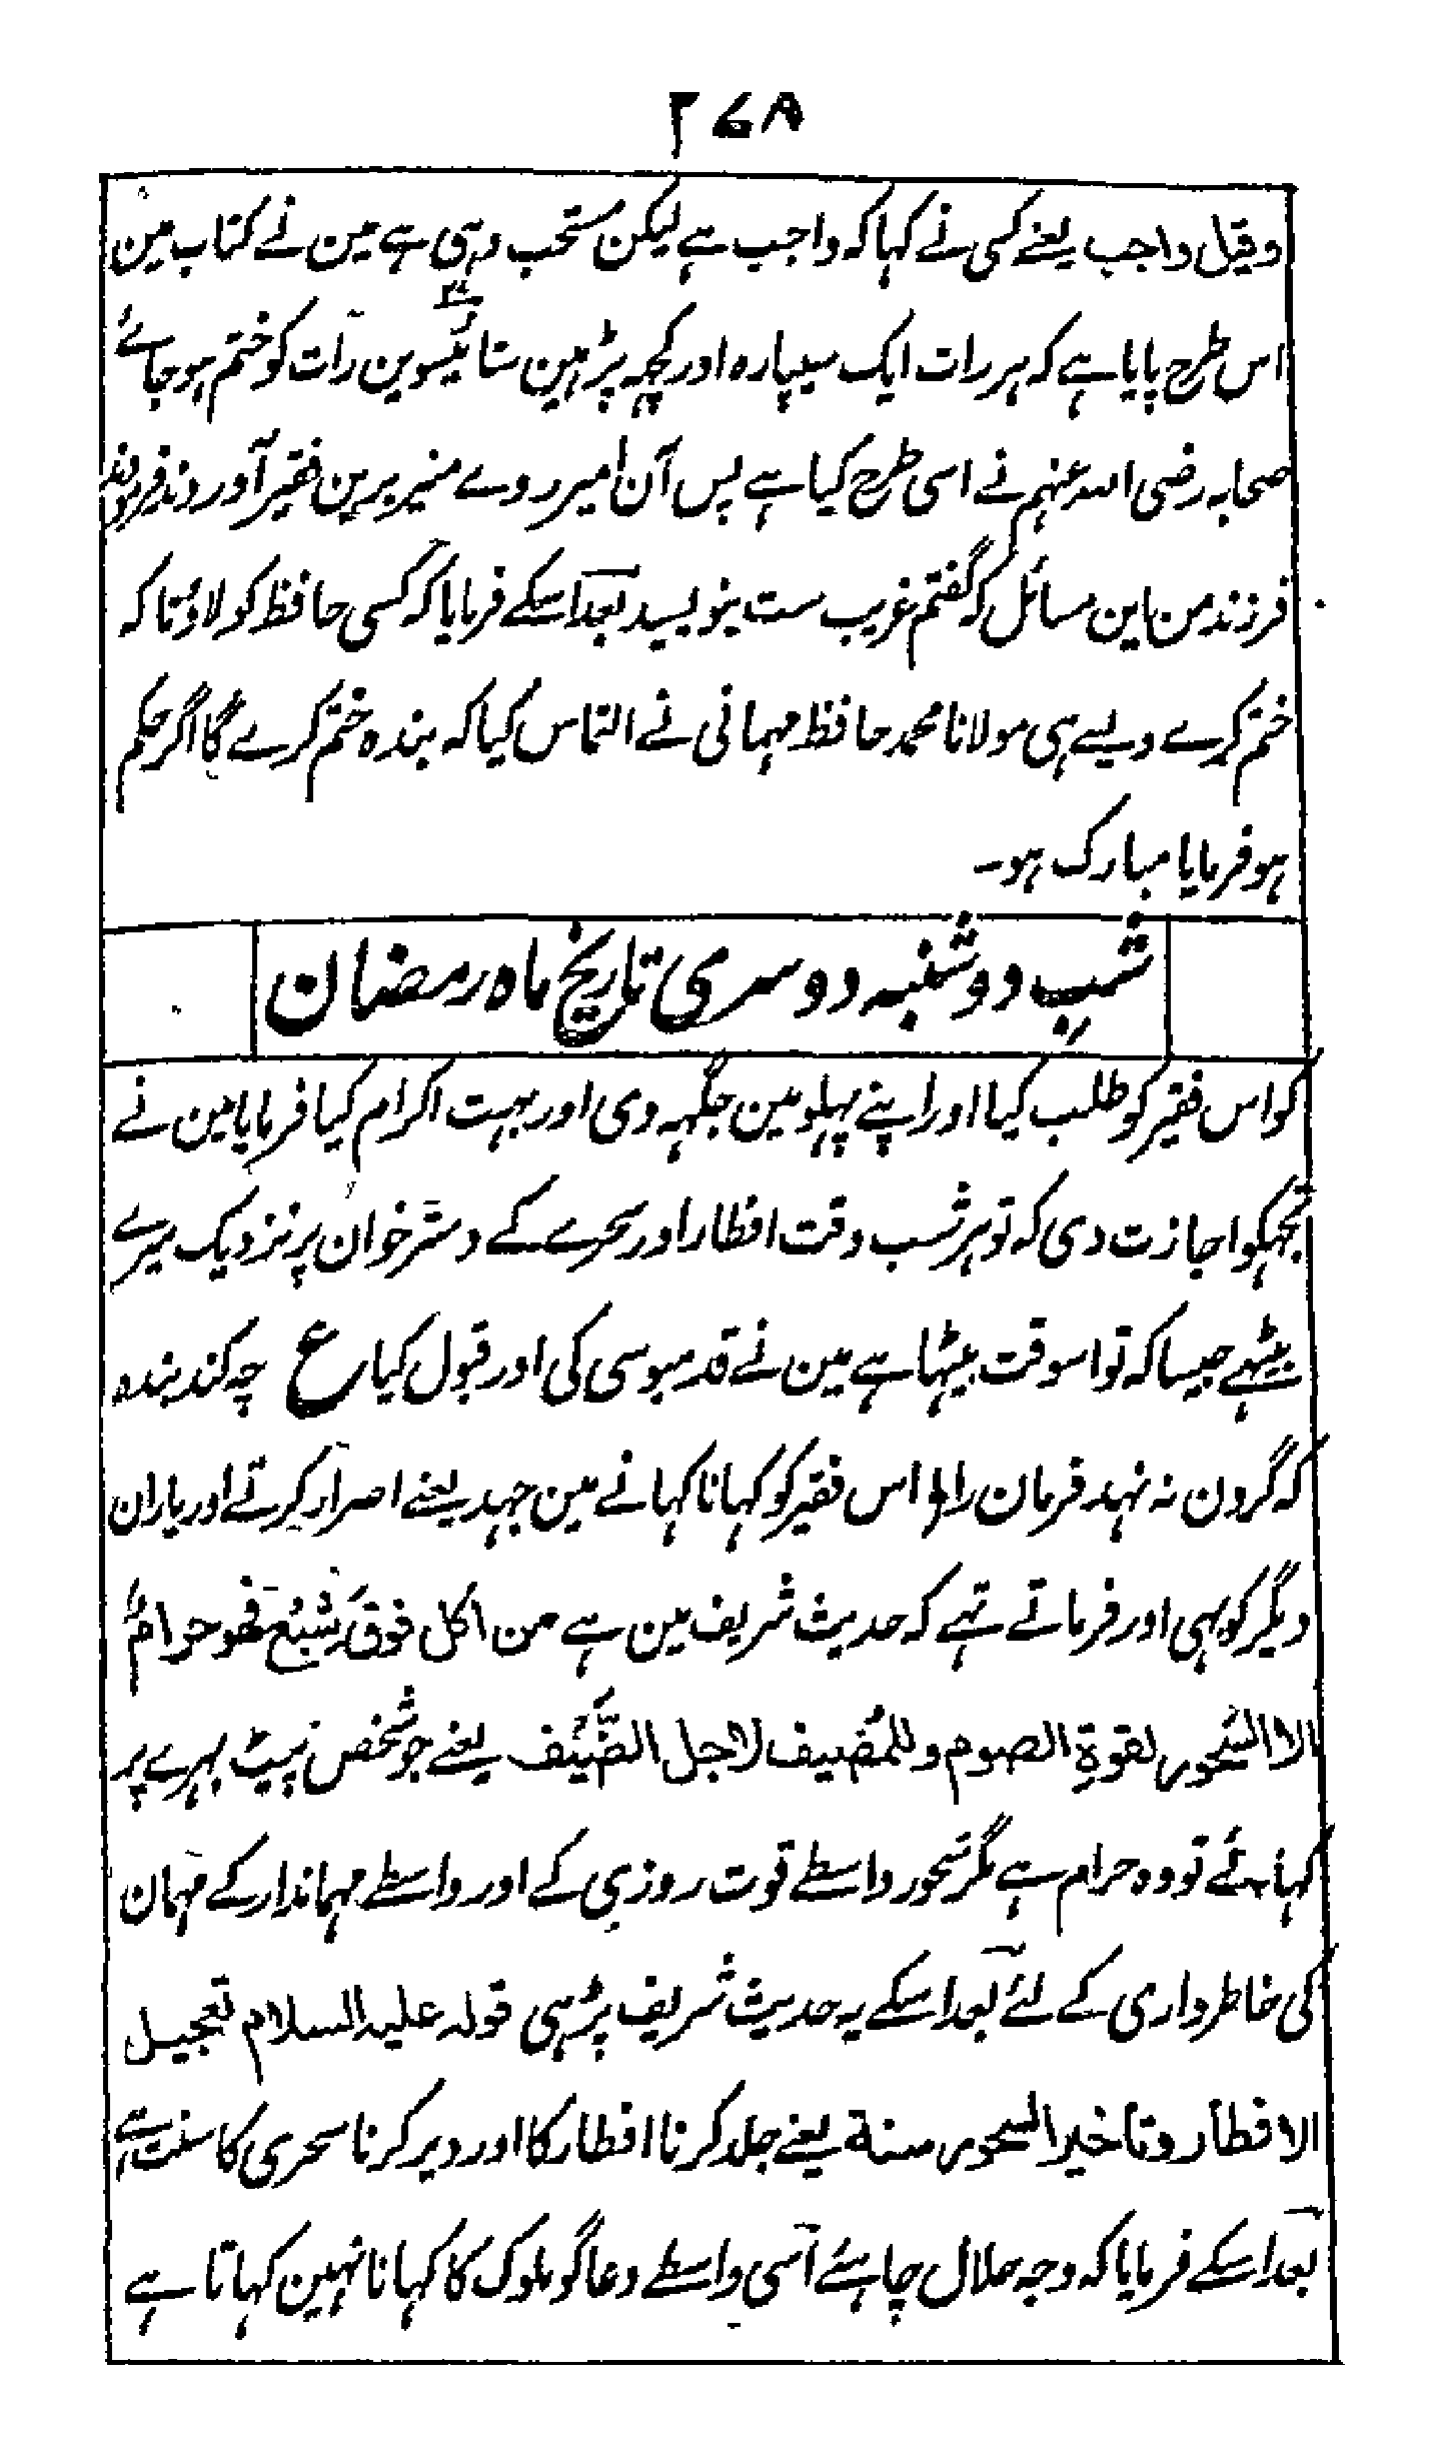 ۲۶۸
وقیل واجب یعنے کسی نے کہا کہ واجب ہے لیکن مستحب وہی ہے مین نے کتاب مین
اس طرح پایا ہے کہ ہر رات ایک سیپارہ اور کچہہ پڑہین ستائیسوین رات کو ختم ہو جائے
صحابہ رضی اللہ عنہم نے اسی طرح کیا ہے پس آن امیر روے منیر برین فقیر آوردند فرمودند
فرزند من این مسائل کہ گفتم غریب ست بنویسید بعد اسکے فرمایا کہ کسی حافظ کو لاؤ تا کہ
ختم کرے ویسے ہی مولانا محمد حافظ مہمانی نے التماس کیا کہ بندہ ختم کرے گا اگر حکم
ہو فرمایا مبارک ہو۔
شب دوشنبہ دوسری تاریخ ماہ رمضان
کو اس فقیر کو طلب کیا اور اپنے پہلو مین جگہہ دی اور بہت اکرام کیا فرمایا مین نے
تجہکو اجازت دی کہ تو ہر شب وقت افطار اور سحرے کے دسترخوان پر نزدیک میرے
بیٹہے جیسا کہ تو اسوقت بیٹہا ہے مین نے قدمبوسی کی اور قبول کیا ع چہ کند بندہ
کہ گردن نہ نہد فرمان را۔ اس فقیر کو کہانا کہانے مین جہد یعنے اصرار کرتے اور یاران
دیگر کو بہی اور فرماتے تہے کہ حدیث شریف مین ہے من اکل فوق شبع فهو حرامٌ
الا السَّحور لقوةِ الصوم وللمُضيف لاجل الضَّيف یعنے جو شخص پیٹ بہرے پر
کہائے تو وہ حرام ہے مگر سَحور واسطے قوت روزی کے اور واسطے مہماندار کے مہمان
کی خاطرداری کے لئے بعد اسکے یہ حدیث شریف پڑہی قولہ علیہ السلام تعجیل
الافطار وتاخیر السحور سنة یعنے جلد کرنا افطار کا اور دیر کرنا سحری کا سنت ہے
بعد اسکے فرمایا کہ وجہ حلال چاہئے اسی واسطے دعاگو ملوک کا کہانا نہین کہاتا ہے